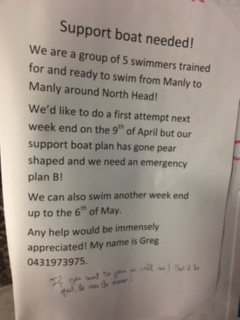 Support boat needed!
We are a group of 5 swimmers trained
for and ready to swim from Manly to
Manly around North Head!
We'd like to do a first attempt next
week end on the 9th of April but our
support boat plan has gone pear
shaped and we need an emergency
plan B!
We can also swim another week end
up to the 6th of May.
Any help would be immensely
appreciated! My name is Greg
0431973975.
If you want to join us call me! That'd be